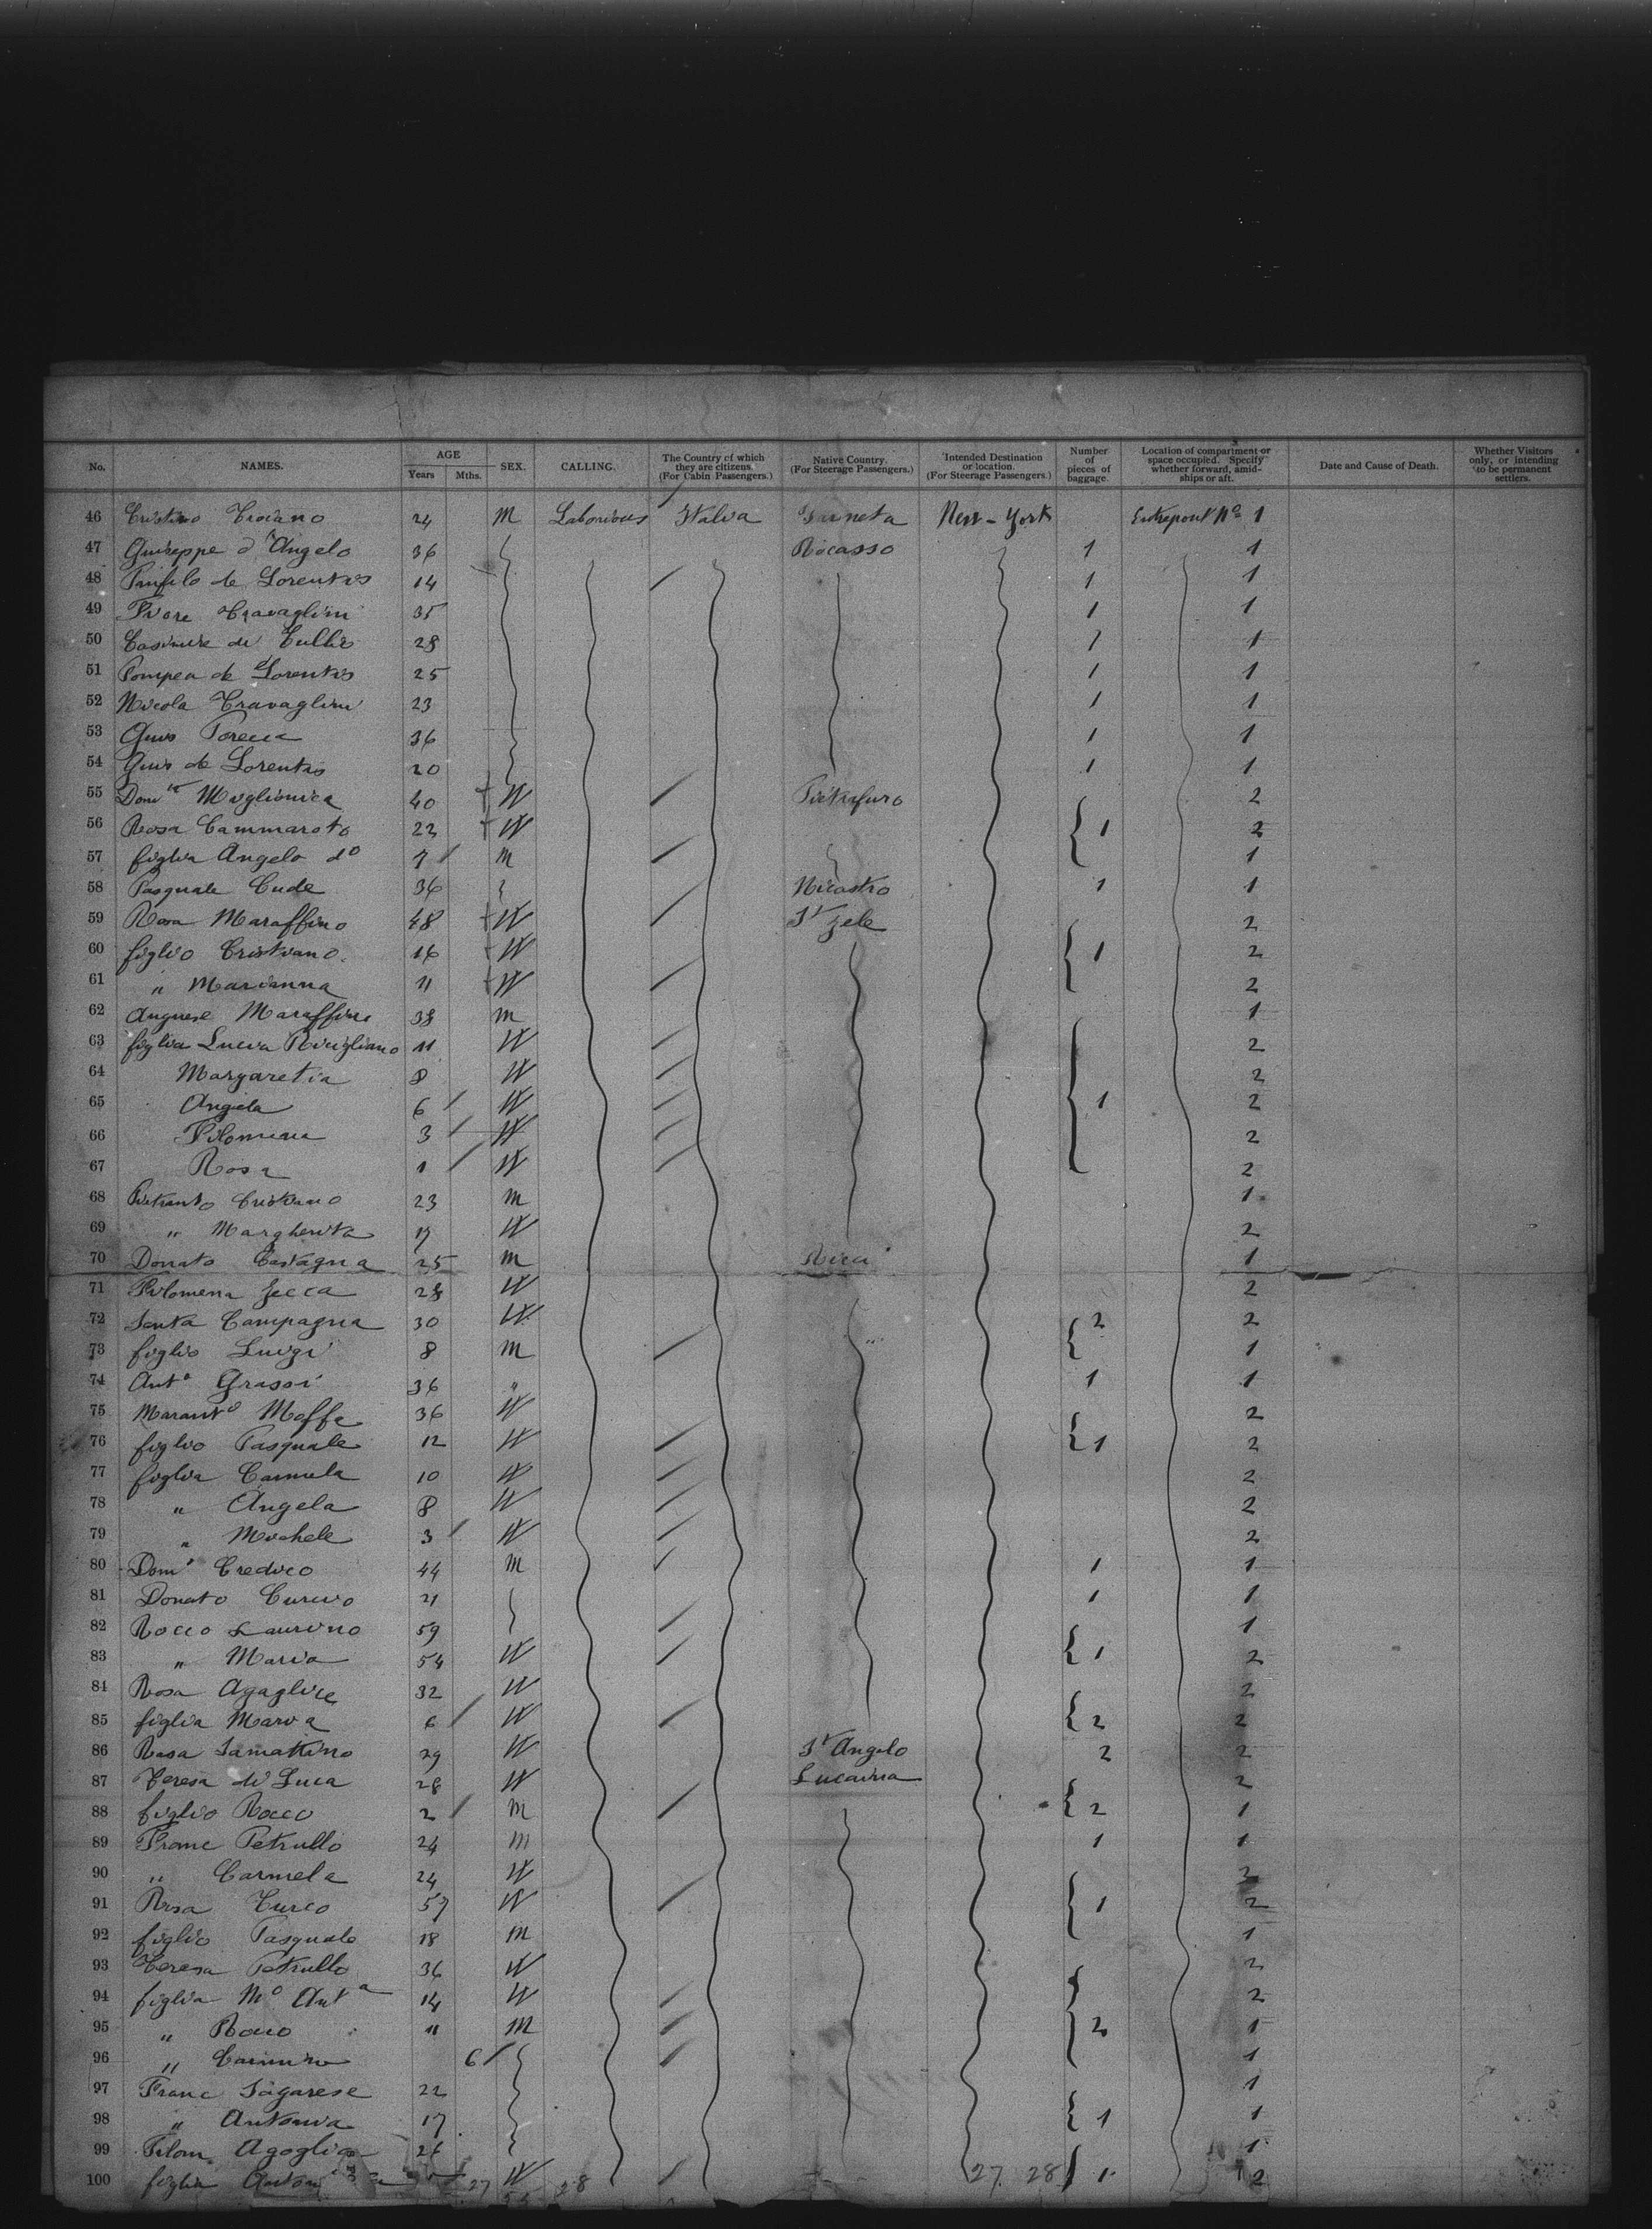 No. NAMES. AGE Years Mths. SEX. CALLING. The Country of which they are citizens. (For Cabin Passengers.) Native Country. (For Steerage Passengers.) Intended Destination or location. (For Steerage Passengers.) Number of pieces of baggage. Location of compartment or space occupied. Specify whether forward, amidships or aft. Date and Cause of Death. Whether Visitors only, or intending to be permanent settlers.
46 Troiano 24 M Italia New-York Entrepont No 1
47 Giuseppe d'Angelo 36 Rocasso 1 1
48 Panfilo de Lorentis 14 1 1
49 Travaglini 35 1 1
50 28 1 1
51 Pompea de Lorentis 25 1 1
52 Nicola Travaglini 23 1 1
53 Porecca 36 1 1
54 de Lorentis 20 1 1
55 40 W 2
56 Rosa Cammaroto 23 W 1 2
57 figlia Angelo do 7 M 1
58 Pasquale Cude 36 Nicastro 1 1
59 Rosa Maraffino 48 W St Fele 2
60 figlio Cristiano 16 W 1 2
61 " Marianna 11 W 2
62 Maraffino 38 M 1
63 figlia Lucia 11 W 2
64 Margaretia 8 W 2
65 Angela 6 W 1 2
66 Filomena 3 W 2
67 Rosa 1 W 2
68 Cristiano 23 M 1
69 " Margherita 17 W 2
70 Donato Castagna 25 M Ricci 1
71 Filomena Zecca 28 W 2
72 Santa Campagna 30 W 2 2
73 figlio Luigi 8 M 1
74 Anto Grassi 36 " 1 1
75 Maffe 36 W 2
76 figlio Pasquale 12 W 1 2
77 figlia Carmela 10 W 2
78 " Angela 8 W 2
79 " Michele 3 W 2
80 Domo Credico 44 M 1 1
81 Donato Curcio 21 1 1
82 Rocco Laurino 59 1
83 " Maria 54 W 1 2
84 Rosa 32 W 2
85 figlia Maria 6 W 2 2
86 Rosa 29 W St Angelo 2 2
87 Teresa di Luca 28 W 2
88 figlio Rocco 2 M 2 1
89 Franc Petrullo 24 M 1 1
90 " Carmela 24 W 2
91 Rosa Turco 57 W 1 2
92 figlio Pasquale 18 M 1
93 Teresa Petrullo 36 W 2
94 figlia Ma Anta 14 W 2
95 " Rocco 11 M 2 1
96 " Carmine 6 1
97 Franc Sagarese 22 1
98 " Antonia 17 1 1
99 Filom Agoglia 26 1
100 figlia 27 W 28 27 28 1 2